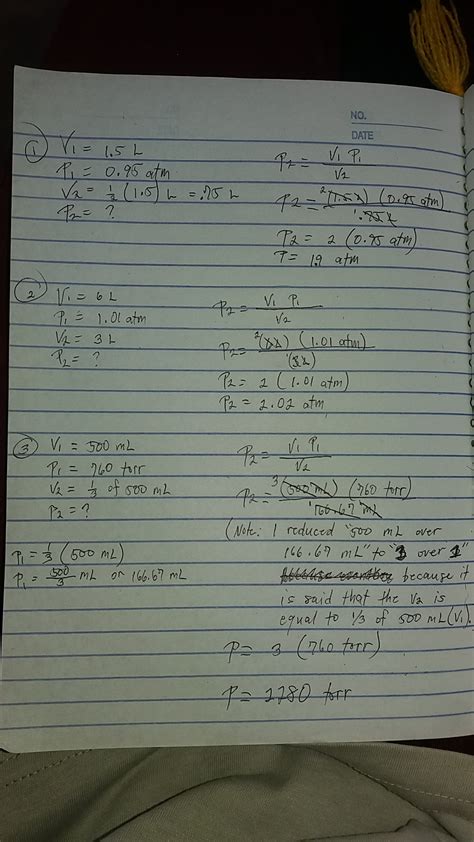 NO.
DATE
① V1 = 1.5 L
P1 = 0.95 atm
V2 = 1/2 (1.5) L = .75 L
P2 = ?
P2 = V1 P1 / V2
P2 = 2 (1.5 L) (0.95 atm) / L
P2 = 2 (0.95 atm)
P = 1.9 atm
② V1 = 6 L
P1 = 1.01 atm
V2 = 3 L
P2 = ?
P2 = V1 P1 / V2
P2 = 2 (1.01 atm) / 1
P2 = 2 (1.01 atm)
P2 = 2.02 atm
③ V1 = 500 mL
P1 = 760 torr
V2 = 1/3 of 500 mL
P2 = ?
P1 = 1/3 (500 mL)
P1 = 500/3 mL or 166.67 mL
P2 = V1 P1 / V2
P2 = 3 (500 mL) (760 torr) / 166.67 mL
(Note: I reduced "500 mL over
166.67 mL" to "3 over 1"
because it
is said that the V2 is
equal to 1/3 of 500 mL (V1).
P = 3 (760 torr)
P = 2280 torr